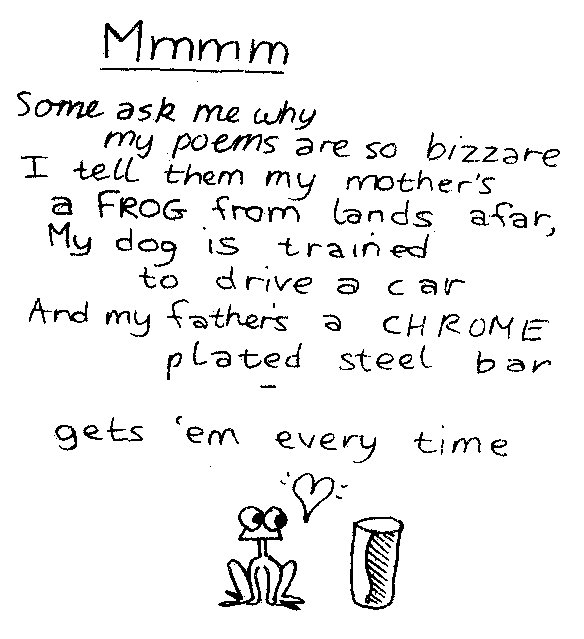 Mmmm
Some ask me why
my poems are so bizzare
I tell them my mother's
a FROG from lands afar,
My dog is trained
to drive a car
And my father's a CHROME
plated steel bar
–
gets 'em every time